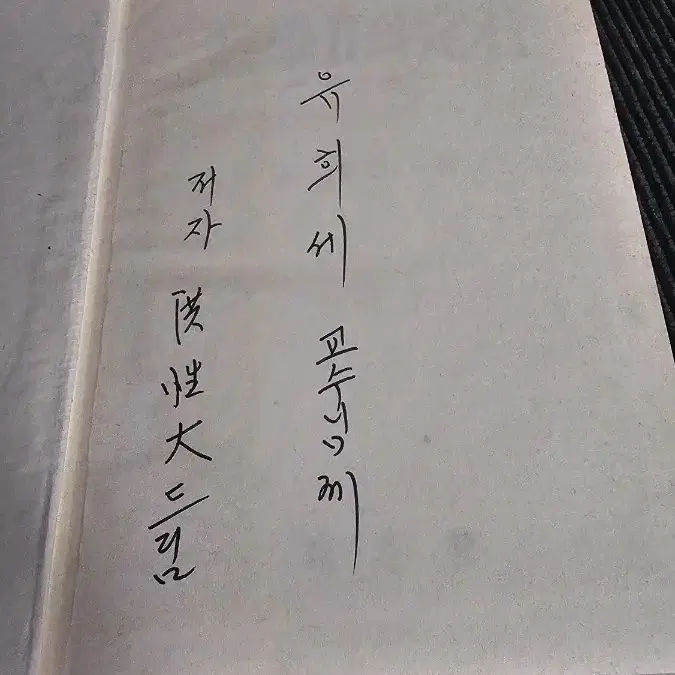 유희세 교수님께
저자 洪性大 드림